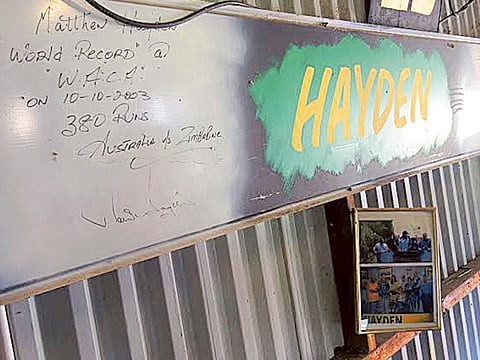 Matthew Hayden
WORLD RECORD" @
"W.A.C.A"
"ON 10-10-2003
380 RUNS
AUSTRALIA Vs Zimbabwe
HAYDEN
HAYDEN